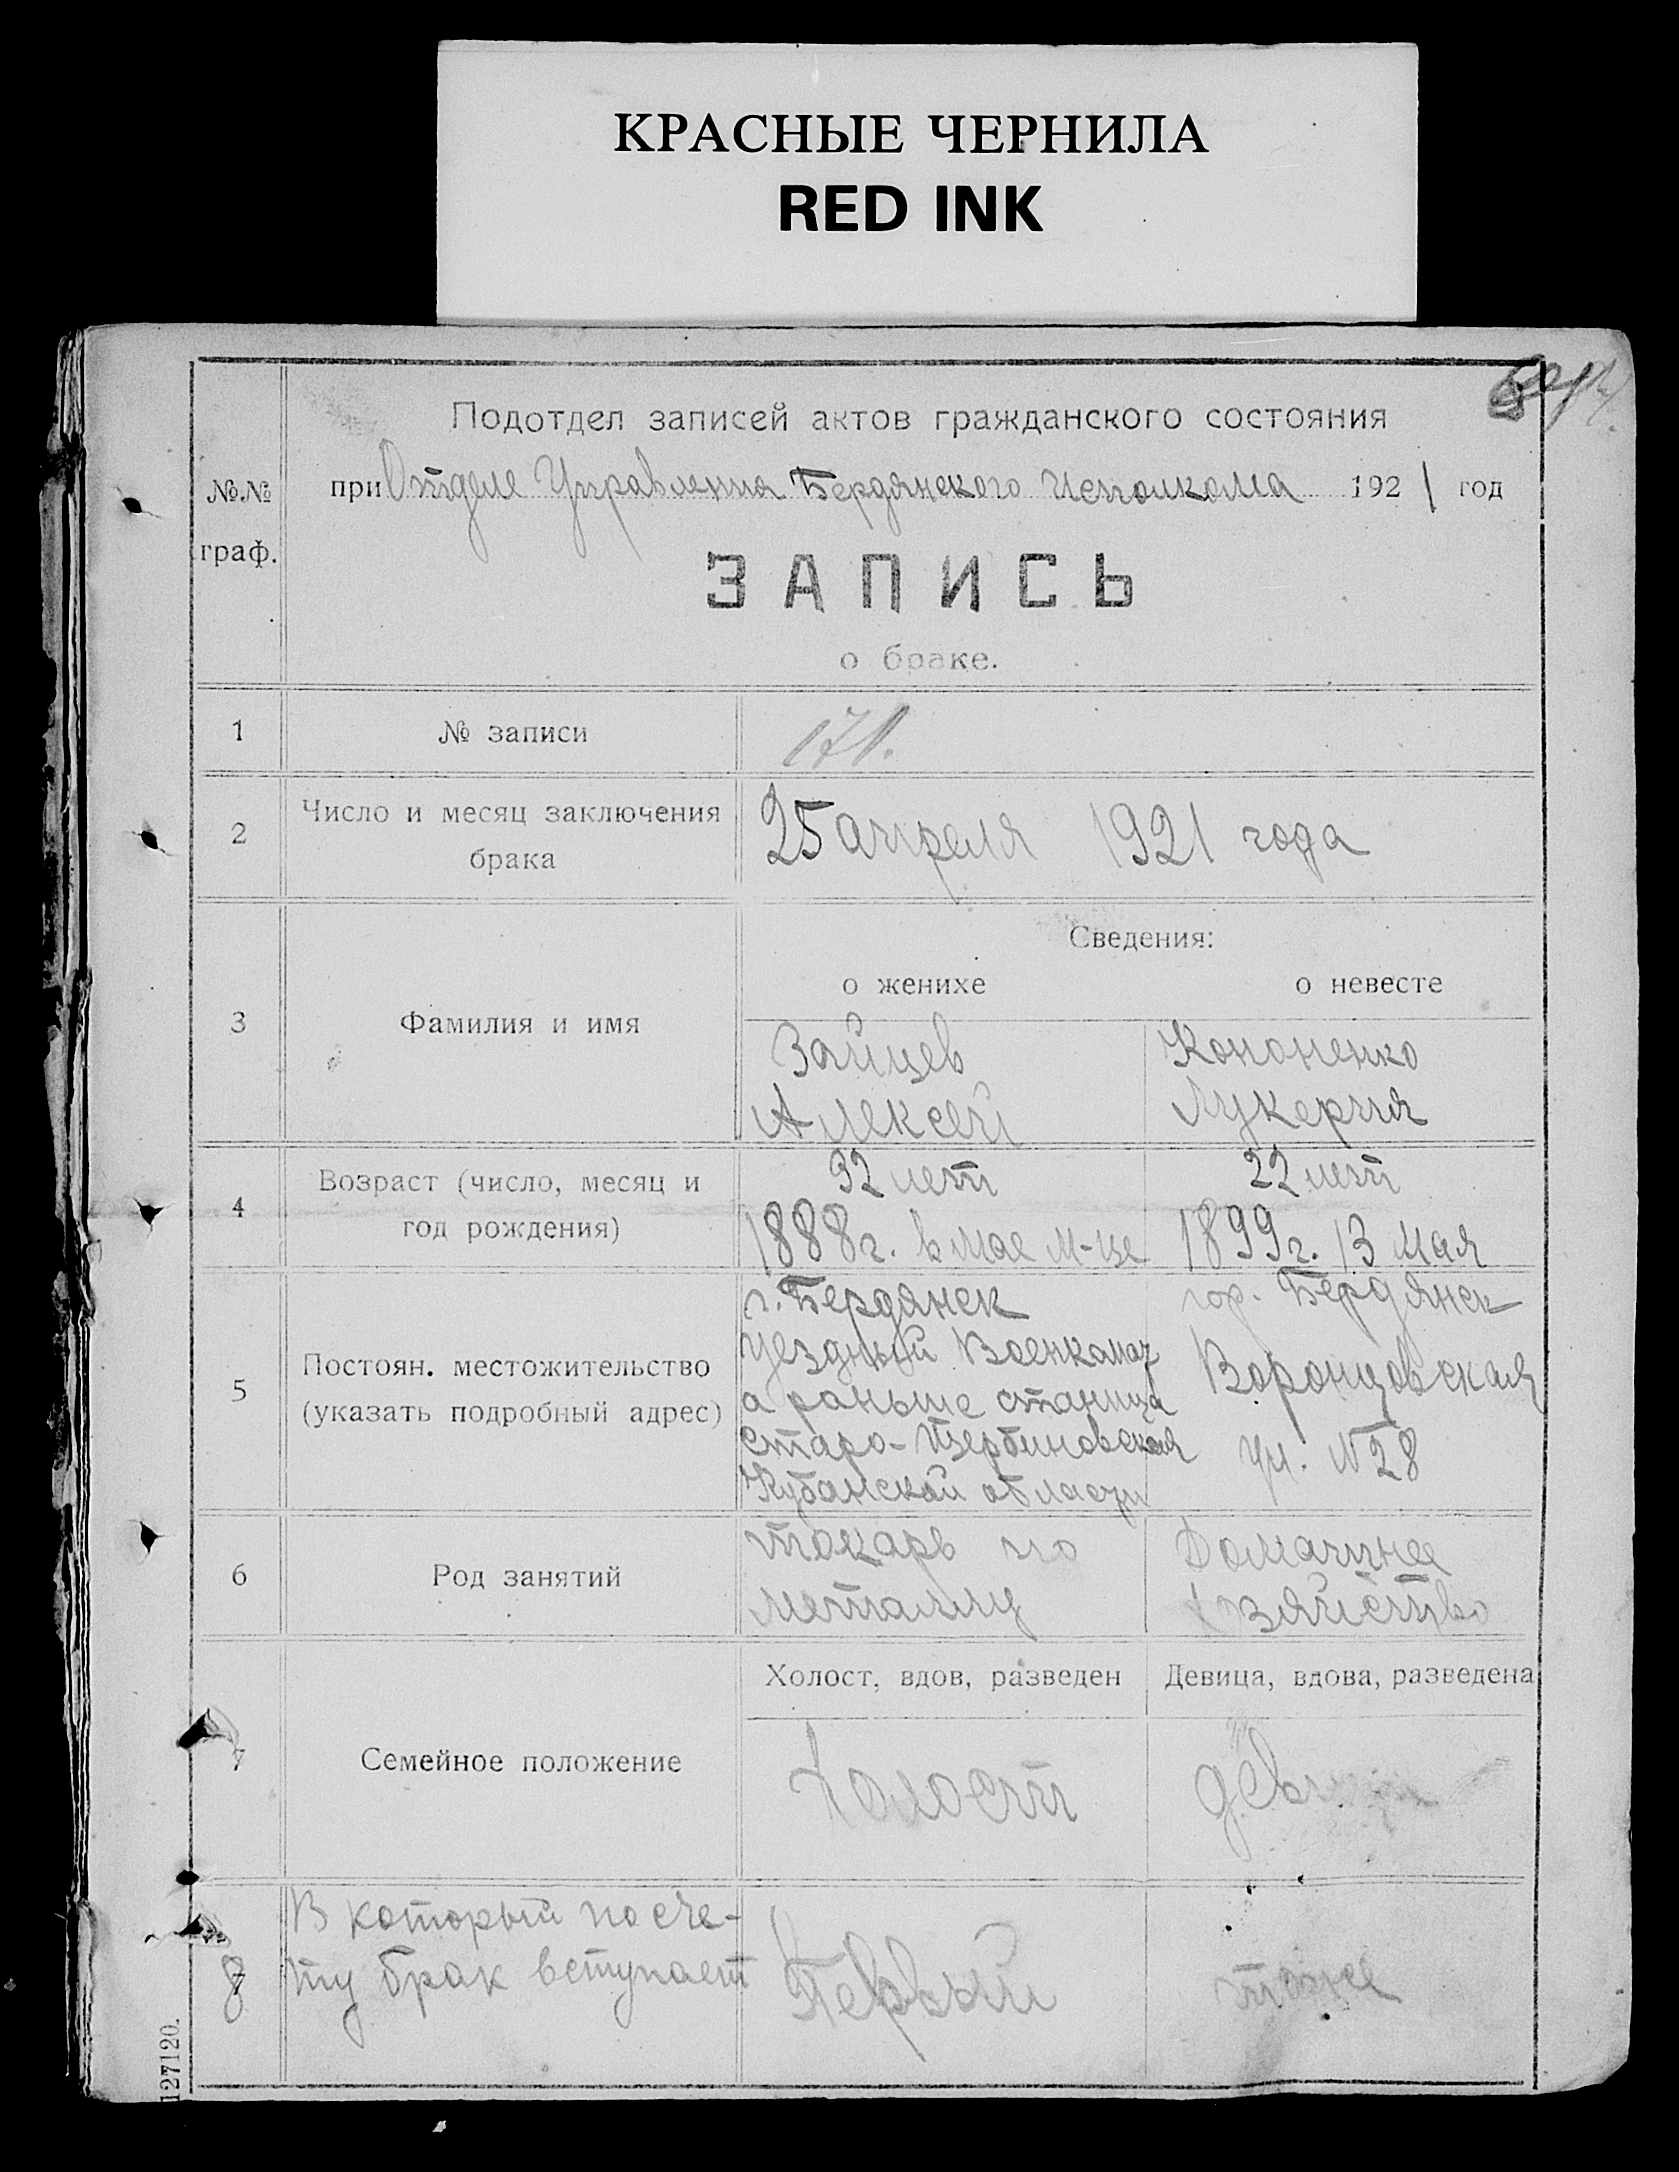 КРАСНЫЕ ЧЕРНИЛА
RED INK
Подотдел записей актов гражданского состояния
№.№ граф.
при Отделе Управления Бердянского Исполкома 1921 год
ЗАПИСЬ
о браке.
1 № записи 171.
2 Число и месяц заключения брака 25 апреля 1921 года
Сведения:
о женихе о невесте
3 Фамилия и имя
Зайцев Кононенко
Алексей Лукерия
4 Возраст (число, месяц и год рождения)
32 лет 22 лет
1888 г. в мае м-це 1899 г. 13 мая
5 Постоян. местожительство (указать подробный адрес)
г. Бердянск гор. Бердянск
уездный Военкомат Воронцовская
а раньше станица ул. N 28
Старо-Щербиновская
Кубанской области
6 Род занятий
токарь по Домашнее
металлу хозяйство
Холост, вдов, разведен Девица, вдова, разведена
7 Семейное положение холост девица
8 В который по сче-
ту брак вступает Первый тоже
127120.